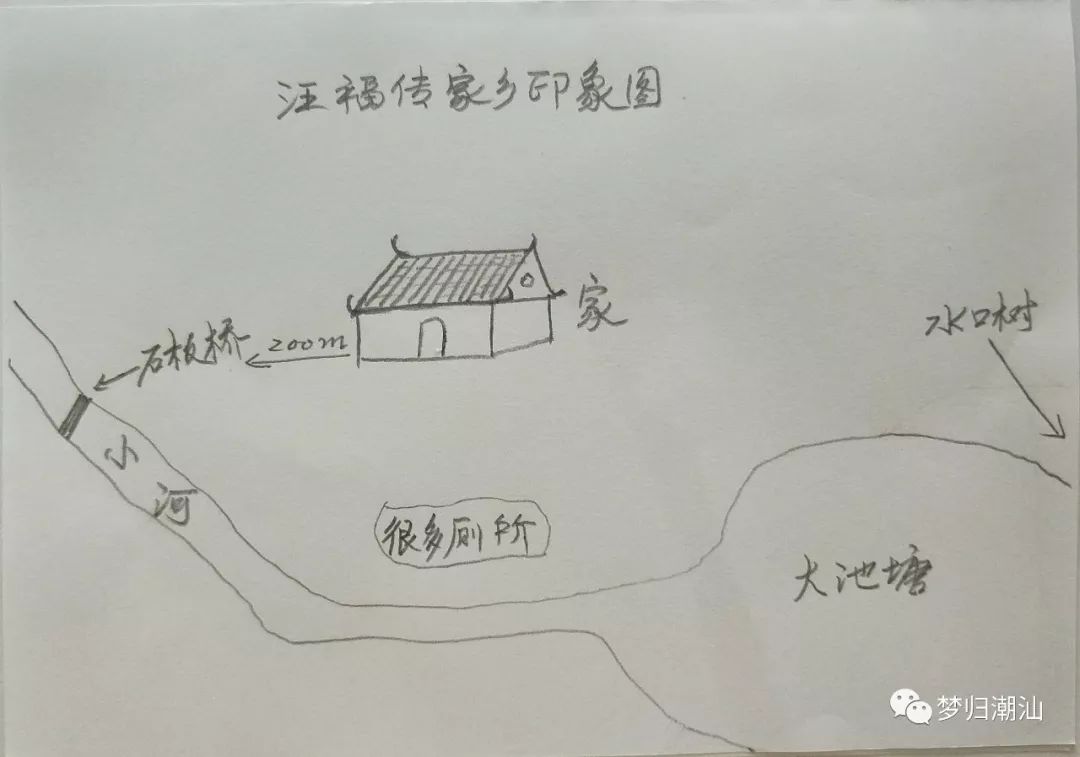 汪福传家乡印象图
家
水口树
石板桥
200m
小河
很多厕所
大池塘
梦归潮汕